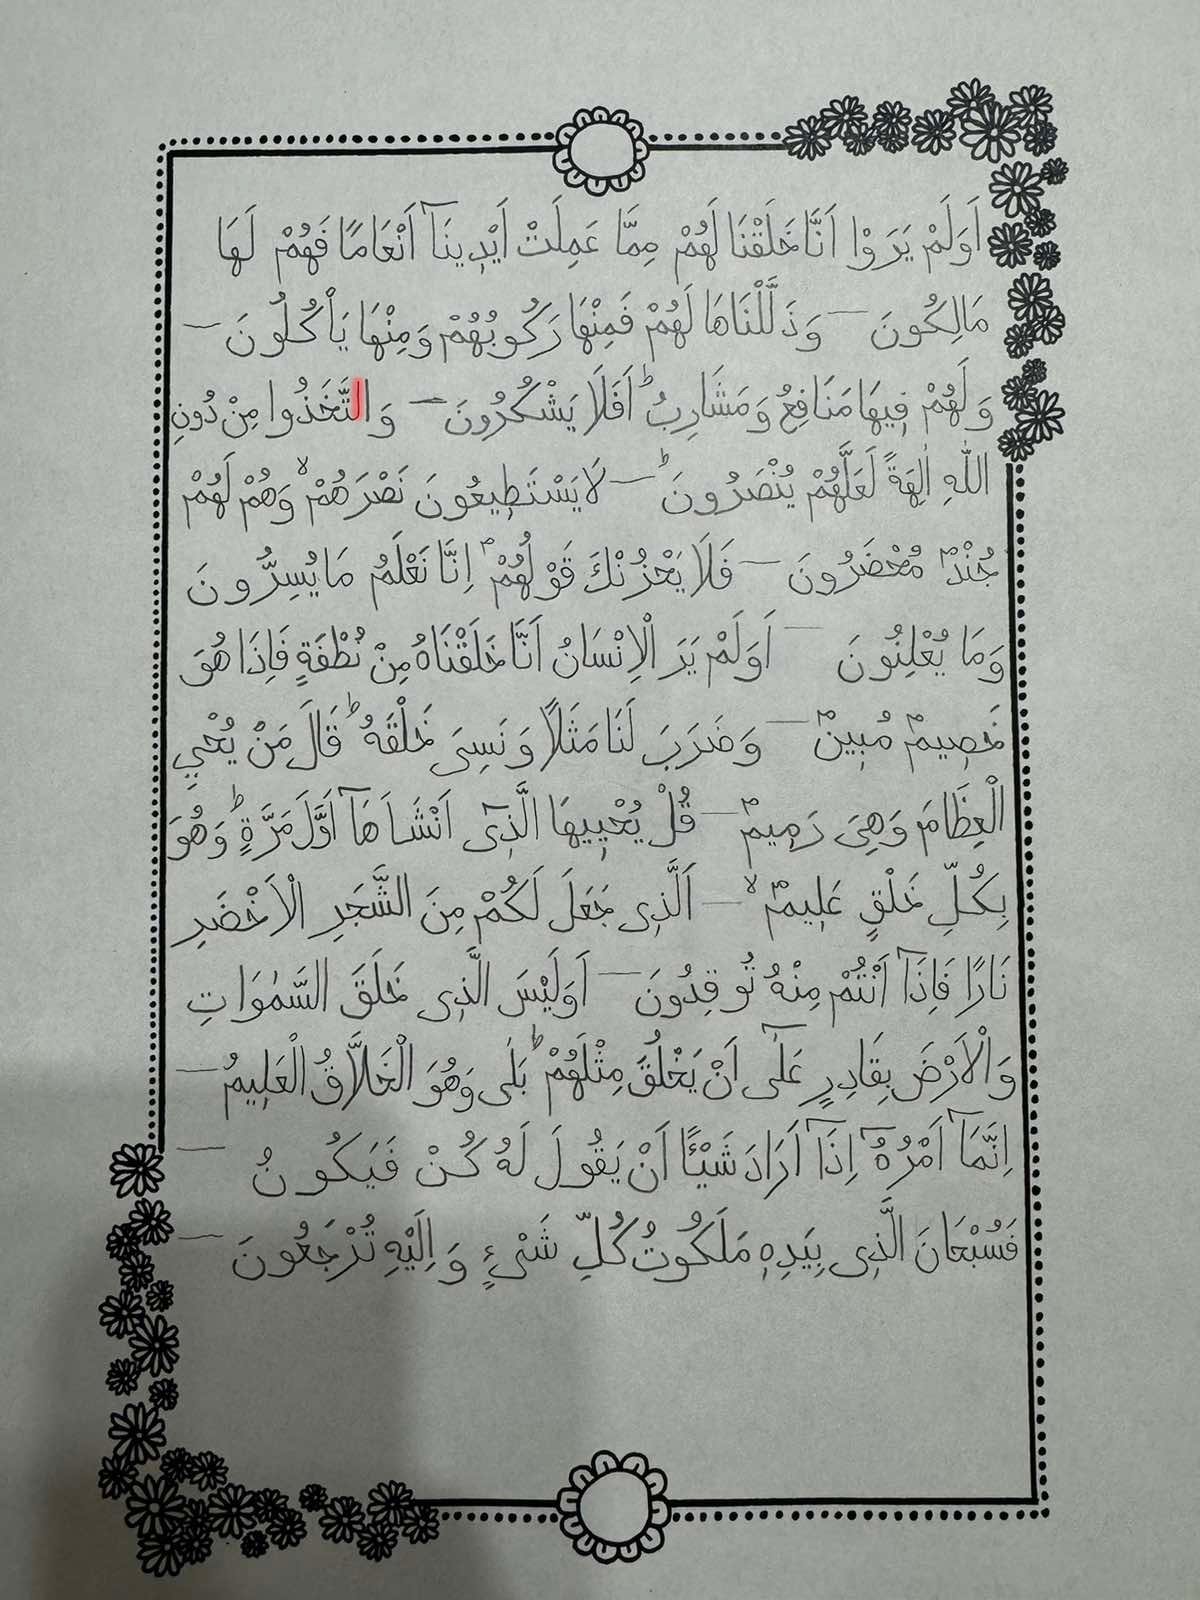 اَوَلَمْ يَرَوْا اَنَّا خَلَقْنَا لَهُمْ مِمَّا عَمِلَتْ اَيْدِينَٓا اَنْعَامًا فَهُمْ لَهَا
مَالِكُونَ — وَذَلَّلْنَاهَا لَهُمْ فَمِنْهَا رَكُوبُهُمْ وَمِنْهَا يَأْكُلُونَ —
وَلَهُمْ فِيهَا مَنَافِعُ وَمَشَارِبُۜ اَفَلَا يَشْكُرُونَ — وَالتَّخَذُوا مِنْ دُونِ
اللّٰهِ اٰلِهَةً لَعَلَّهُمْ يُنْصَرُونَۜ — لَا يَسْتَطِيعُونَ نَصْرَهُمْۙ وَهُمْ لَهُمْ
جُنْدٌ مُحْضَرُونَ — فَلَا يَحْزُنْكَ قَوْلُهُمْۢ اِنَّا نَعْلَمُ مَا يُسِرُّونَ
وَمَا يُعْلِنُونَ — اَوَلَمْ يَرَ الْاِنْسَانُ اَنَّا خَلَقْنَاهُ مِنْ نُطْفَةٍ فَاِذَا هُوَ
خَصِيمٌ مُبِينٌ — وَضَرَبَ لَنَا مَثَلًا وَنَسِيَ خَلْقَهُۜ قَالَ مَنْ يُحْيِ
الْعِظَامَ وَهِيَ رَمِيمٌ — قُلْ يُحْيِيهَا الَّذِٓى اَنْشَاَهَٓا اَوَّلَ مَرَّةٍۜ وَهُوَ
بِكُلِّ خَلْقٍ عَلِيمٌۙ — اَلَّذِى جَعَلَ لَكُمْ مِنَ الشَّجَرِ الْاَخْضَرِ
نَارًا فَاِذَٓا اَنْتُمْ مِنْهُ تُوقِدُونَ — اَوَلَيْسَ الَّذِى خَلَقَ السَّمٰوَاتِ
وَالْاَرْضَ بِقَادِرٍ عَلٰٓى اَنْ يَخْلُقَ مِثْلَهُمْۜ بَلٰى وَهُوَ الْخَلَّاقُ الْعَلِيمُ —
اِنَّمَٓا اَمْرُهُٓ اِذَٓا اَرَادَ شَيْـًٔا اَنْ يَقُولَ لَهُ كُنْ فَيَكُونُ —
فَسُبْحَانَ الَّذِى بِيَدِهِ مَلَكُوتُ كُلِّ شَىْءٍ وَاِلَيْهِ تُرْجَعُونَ —